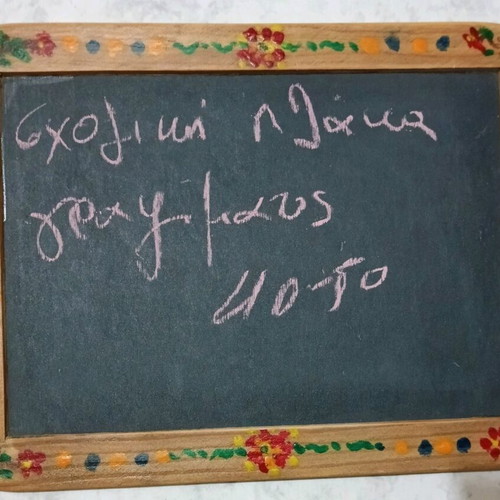 σχολική πλάκα
γραμματος
40-50